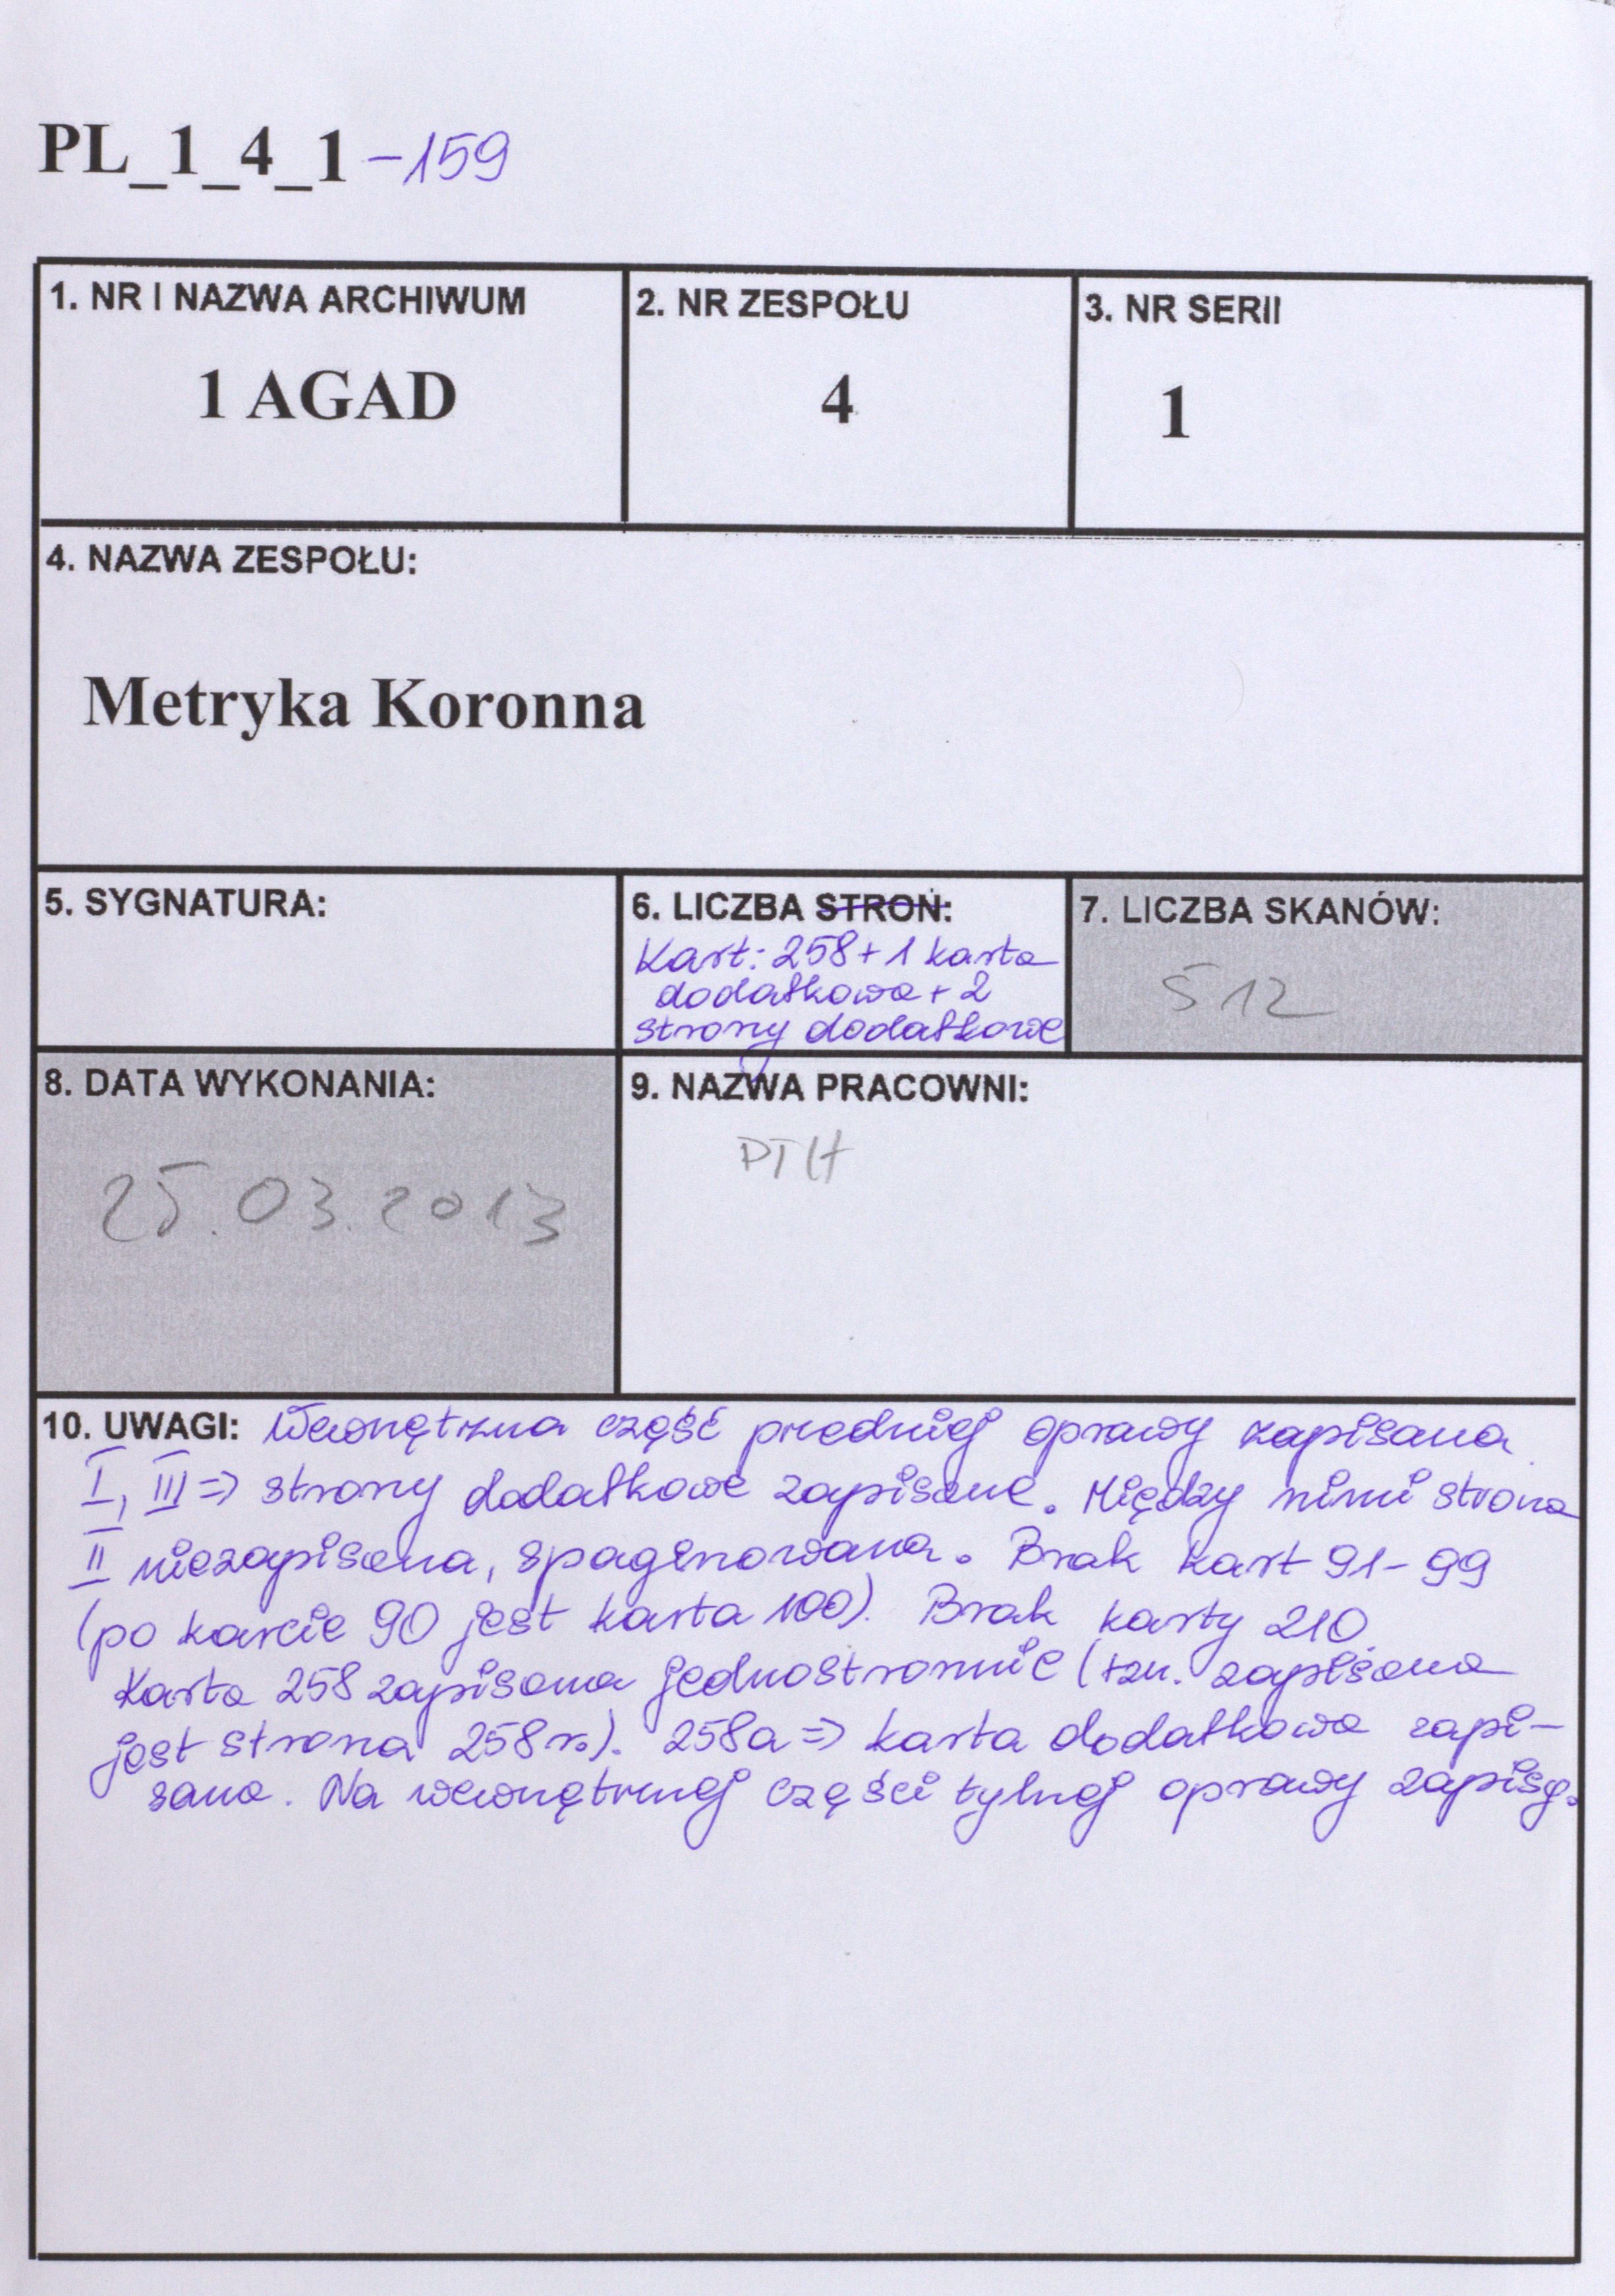 PL_1_4_1 -159
1. NR I NAZWA ARCHIWUM
1 AGAD
2. NR ZESPOŁU
4
3. NR SERII
1
4. NAZWA ZESPOŁU:
Metryka Koronna
5. SYGNATURA:
6. LICZBA STRON:
Kart: 258 + 1 karta
dodatkowa + 2
strony dodatkowe
7. LICZBA SKANÓW:
512
8. DATA WYKONANIA:
25.03.2013
9. NAZWA PRACOWNI:
PTH
10. UWAGI: Wewnętrzna część przedniej oprawy zapisana
I, III => strony dodatkowe zapisane. Między nimi strona
II niezapisana, spaginowana. Brak kart 91-99
(po karcie 90 jest karta 100). Brak karty 210.
Karta 258 zapisana jednostronnie (tzn. zapisana
jest strona 258r.). 258a => karta dodatkowa zapi-
sana. Na wewnętrznej części tylnej oprawy zapisy.